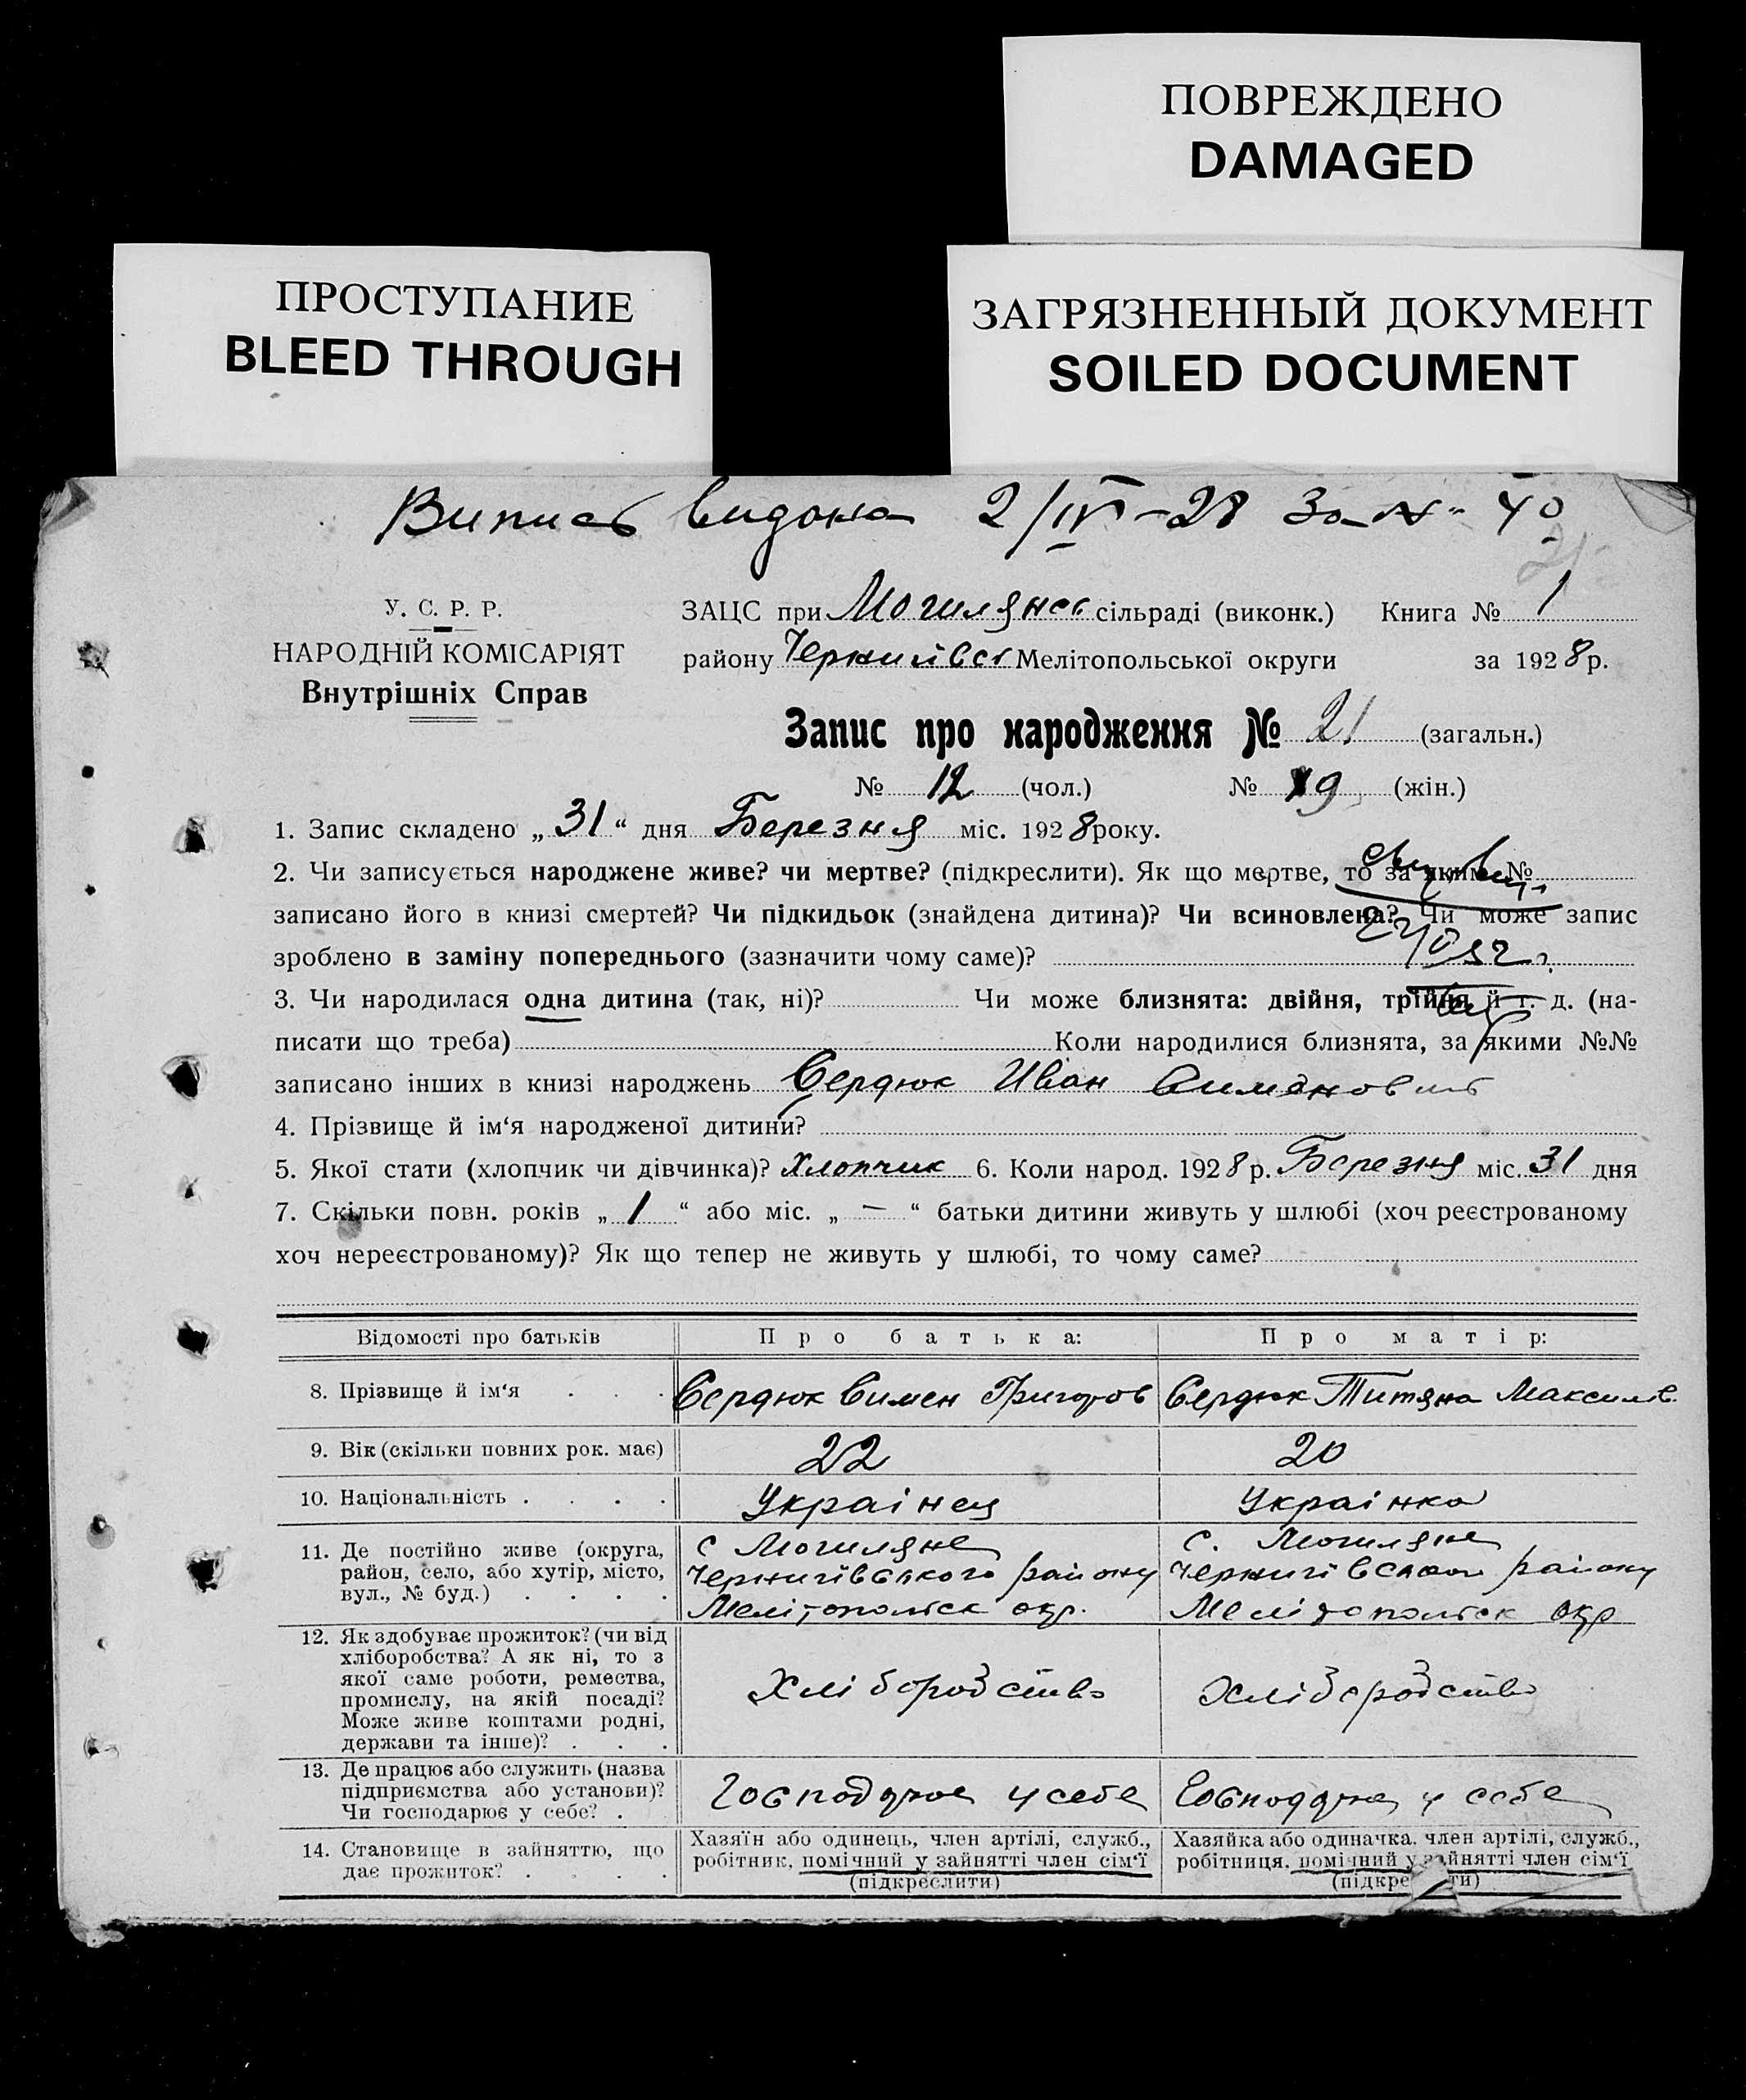 ПОВРЕЖДЕНО
DAMAGED
ПРОСТУПАНИЕ
BLEED THROUGH
ЗАГРЯЗНЕННЫЙ ДОКУМЕНТ
SOILED DOCUMENT
Випись видана 2/IV-28 За № 40
У. С. Р. Р.
НАРОДНІЙ КОМІСАРІЯТ
Внутрішніх Справ
ЗАЦС при Могилянс сільраді (виконк.) Книга № 1
району Чернигівск Мелітопольської округи за 1928 р.
Запис про народження № 21 (загальн.)
№ 12 (чол.) № 9 (жін.)
1. Запис складено „31“ дня Березня міс. 1928 року.
2. Чи записується народжене живе? чи мертве? (підкреслити). Як що мертве, то за яким №
записано його в книзі смертей? Чи підкидьок (знайдена дитина)? Чи всиновлена? Чи може запис
зроблено в заміну попереднього (зазначити чому саме)?
3. Чи народилася одна дитина (так, ні)? Чи може близнята: двійня, трійня й т. д. (на-
писати що треба) Коли народилися близнята, за якими №№
записано інших в книзі народжень Сердюк Иван Симонович
4. Прізвище й ім‘я народженої дитини?
5. Якої стати (хлопчик чи дівчинка)? Хлопчик 6. Коли народ. 1928 р. Березня міс. 31 дня
7. Скільки повн. років „1“ або міс. „—“ батьки дитини живуть у шлюбі (хоч реєстрованому
хоч нереєстрованому)? Як що тепер не живуть у шлюбі, то чому саме?
Відомості про батьків Про батька: Про матір:
8. Прізвище й ім‘я . . . Сердюк Симен Григоров Сердюк Титяна Максимів.
9. Вік (скільки повних рок. має) 22 20
10. Національність . . . . Українец Українка
11. Де постійно живе (округа, район, село, або хутір, місто, вул., № буд.) . . . .
с Могиляне
Чернигівського району
Мелітопольск окр.
с. Могиляне
Чернигівського району
Мелітопольск окр
12. Як здобуває прожиток? (чи від
хліборобства? А як ні, то з
якої саме роботи, ремества,
промислу, на якій посаді?
Може живе коштами родні,
держави та інше)? . . .
Хліборобство Хліборобство
13. Де працює або служить (назва
підприємства або установи)?
Чи господарює у себе? .
Господарює у себе Господарює у себе
14. Становище в зайняттю, що
дає прожиток? . . . .
Хазяїн або одинець, член артілі, служб.,
робітник, помічний у зайнятті член сім‘ї
(підкреслити)
Хазяйка або одиначка, член артілі, служб.,
робітниця, помічний у зайнятті член сім‘ї